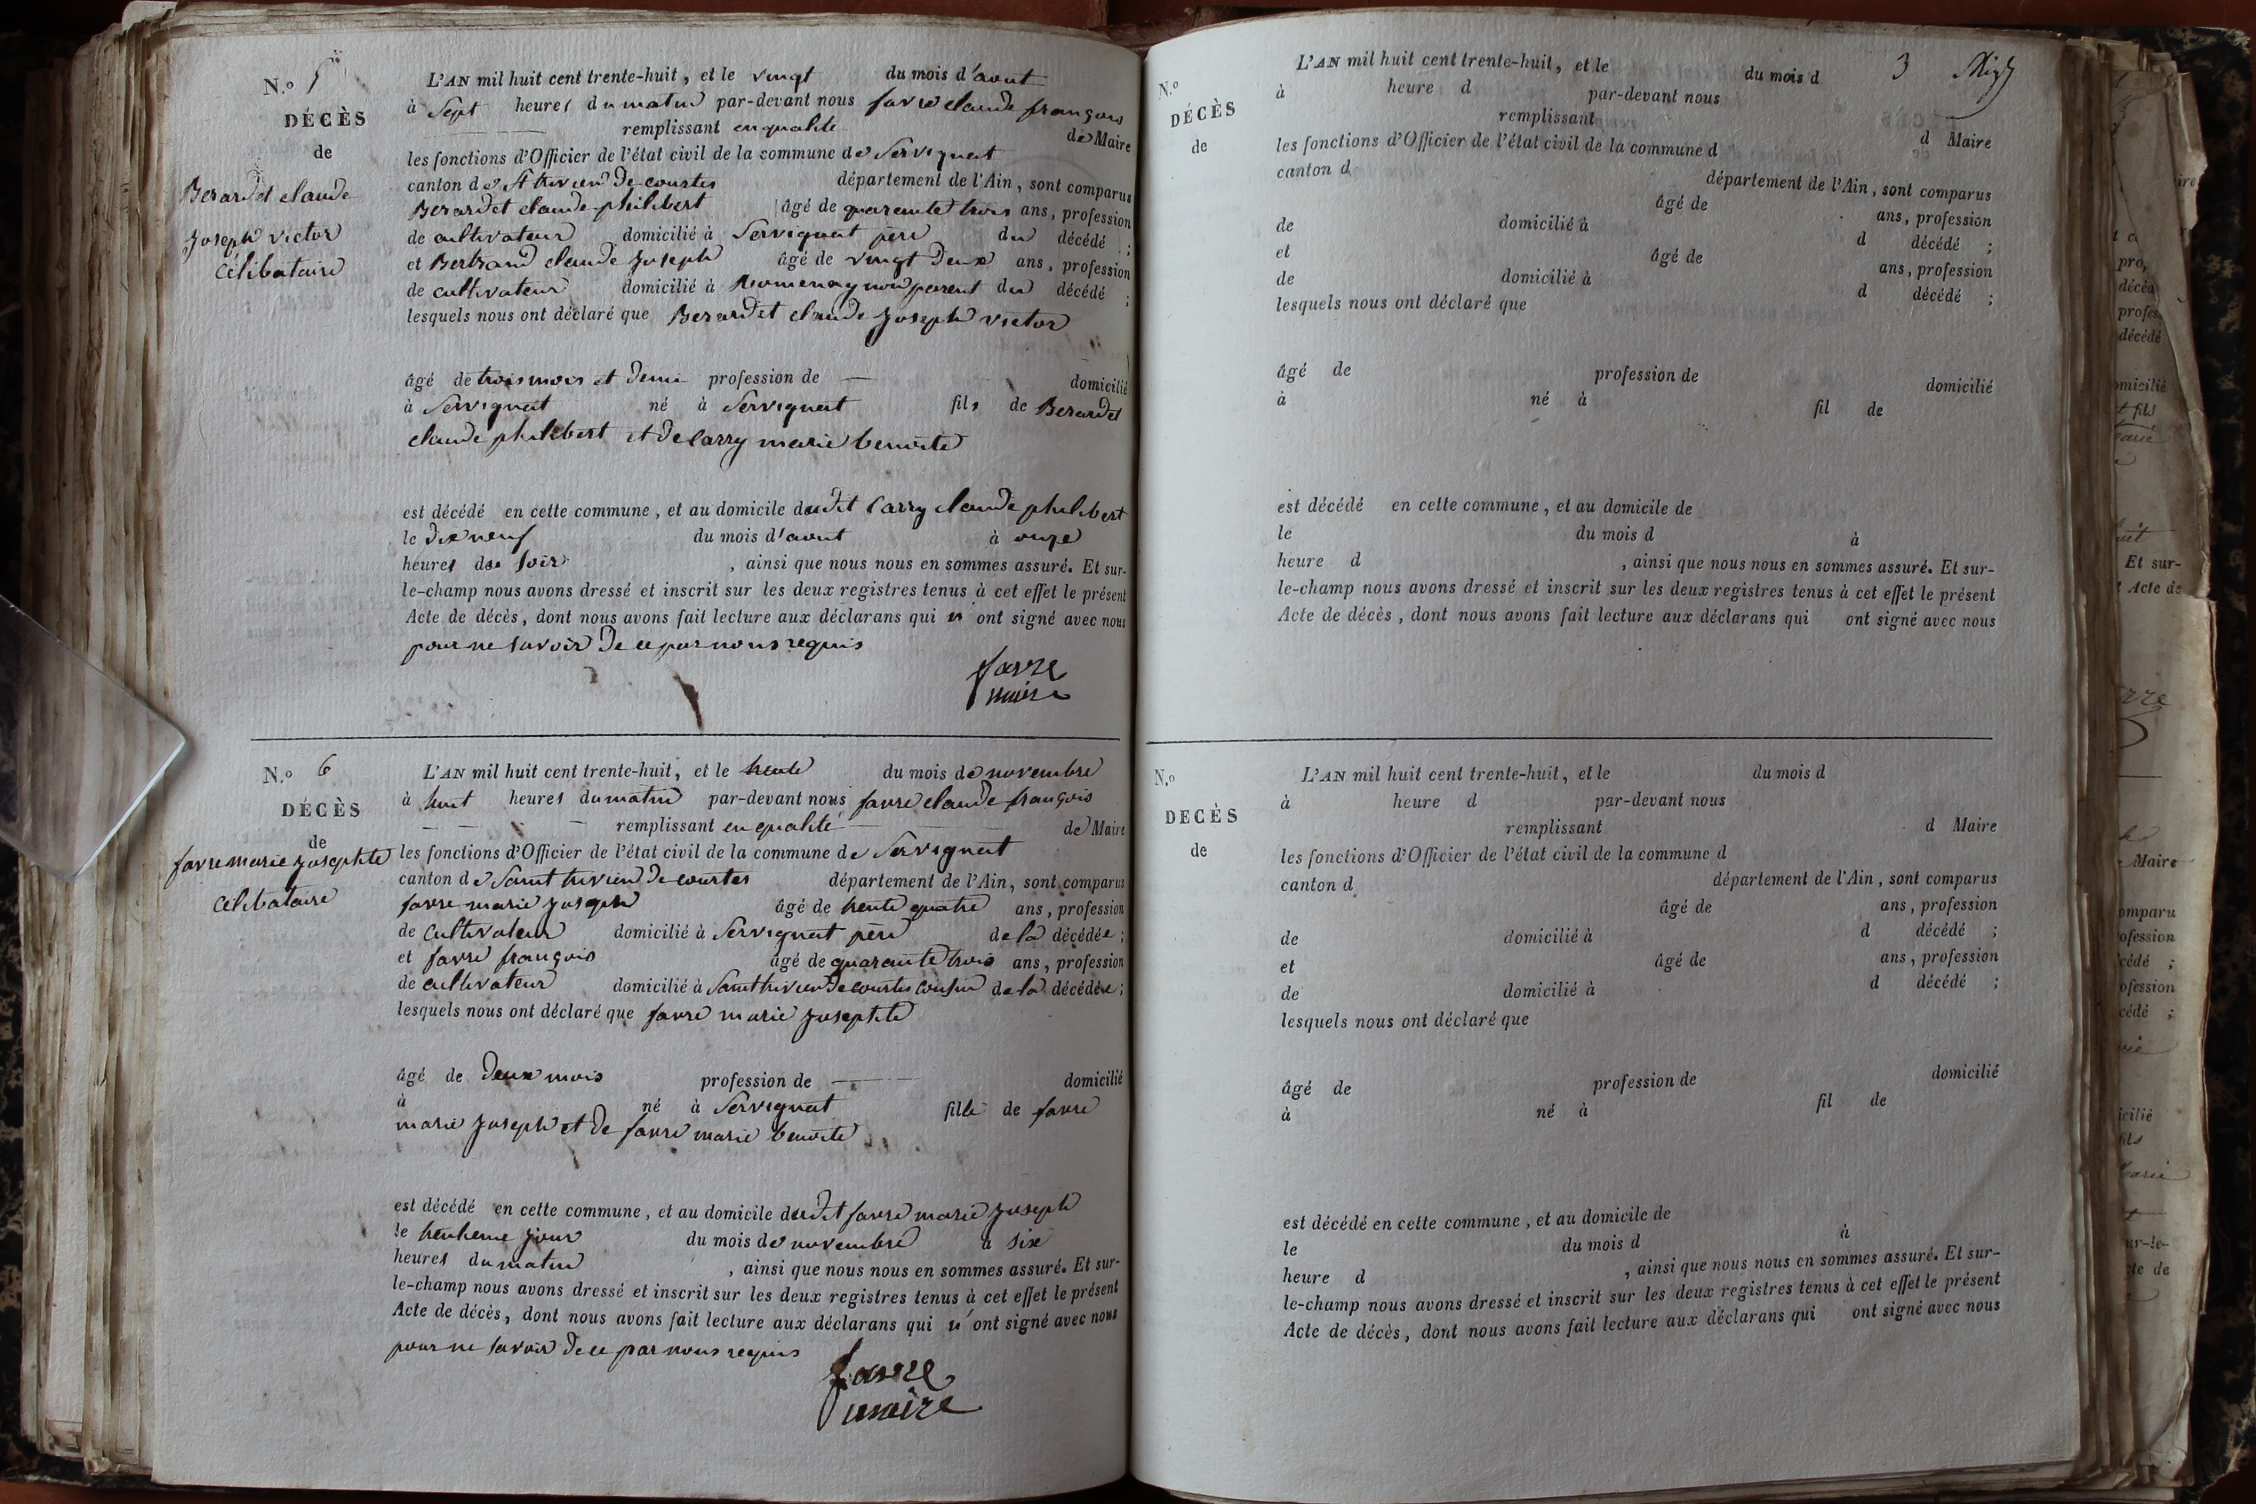 N.o 5
DÉCÈS
de
Berardet claude
Joseph victor
célibataire
L'AN mil huit cent trente-huit, et le vingt du mois d'aout
à Sept heures du matin par-devant nous favre claude françois
remplissant en qualité de Maire
les fonctions d'Officier de l'état civil de la commune de Servignat
canton de St trivier De courtes département de l'Ain, sont comparus
Berardet claude philibert âgé de quarante trois ans, profession
de cultivateur domicilié à Servignat père du décédé ;
et Bertrand claude Joseph âgé de vingt Deux ans, profession
de cultivateur domicilié à Romenay non parent du décédé ;
lesquels nous ont déclaré que Berardet claude Joseph victor
âgé de trois mois et Demi profession de — domicilié
à Servignat né à Servignat fils de Berardet
claude philibert et De Carry marie benoite
est décédé en cette commune, et au domicile dudit Carry claude philibert
le Dix neuf du mois d'aout à onze
heures du soir , ainsi que nous nous en sommes assuré. Et sur-
le-champ nous avons dressé et inscrit sur les deux registres tenus à cet effet le présent
Acte de décès, dont nous avons fait lecture aux déclarans qui n'ont signé avec nous
pour ne savoir De ce par nous requis
favre
maire
N.o 6
DÉCÈS
de
favre marie Josephte
célibataire
L'AN mil huit cent trente-huit, et le trente du mois de novembre
à huit heures du matin par-devant nous favre claude françois
remplissant en qualité de Maire
les fonctions d'Officier de l'état civil de la commune de Servignat
canton de Saint trivier De courtes département de l'Ain, sont comparus
favre marie Joseph âgé de trente quatre ans, profession
de cultivateur domicilié à Servignat père de la décédée ;
et favre françois âgé de quarante trois ans, profession
de cultivateur domicilié à Saint trivier De courtes cousin de la décédée ;
lesquels nous ont déclaré que favre marie Josephte
âgé de Deux mois profession de — domicilié
à né à Servignat fille de favre
marie Joseph et De favre marie benoite
est décédé en cette commune, et au domicile dudit favre marie Joseph
le trentieme jour du mois de novembre à six
heures du matin , ainsi que nous nous en sommes assuré. Et sur-
le-champ nous avons dressé et inscrit sur les deux registres tenus à cet effet le présent
Acte de décès, dont nous avons fait lecture aux déclarans qui n'ont signé avec nous
pour ne savoir De ce par nous requis
favre
maire
3
N.o
DÉCÈS
de
L'AN mil huit cent trente-huit, et le du mois d
à heure d par-devant nous
remplissant d Maire
les fonctions d'Officier de l'état civil de la commune d
canton d département de l'Ain, sont comparus
âgé de ans, profession
de domicilié à d décédé ;
et âgé de ans, profession
de domicilié à d décédé ;
lesquels nous ont déclaré que
âgé de profession de domicilié
à né à fil de
est décédé en cette commune, et au domicile de
le du mois d à
heure d , ainsi que nous nous en sommes assuré. Et sur-
le-champ nous avons dressé et inscrit sur les deux registres tenus à cet effet le présent
Acte de décès, dont nous avons fait lecture aux déclarans qui ont signé avec nous
N.o
DECÈS
de
L'AN mil huit cent trente-huit, et le du mois d
à heure d par-devant nous
remplissant d Maire
les fonctions d'Officier de l'état civil de la commune d
canton d département de l'Ain, sont comparus
âgé de ans, profession
de domicilié à d décédé ;
et âgé de ans, profession
de domicilié à d décédé ;
lesquels nous ont déclaré que
âgé de profession de domicilié
à né à fil de
est décédé en cette commune, et au domicile de
le du mois d à
heure d , ainsi que nous nous en sommes assuré. Et sur-
le-champ nous avons dressé et inscrit sur les deux registres tenus à cet effet le présent
Acte de décès, dont nous avons fait lecture aux déclarans qui ont signé avec nous